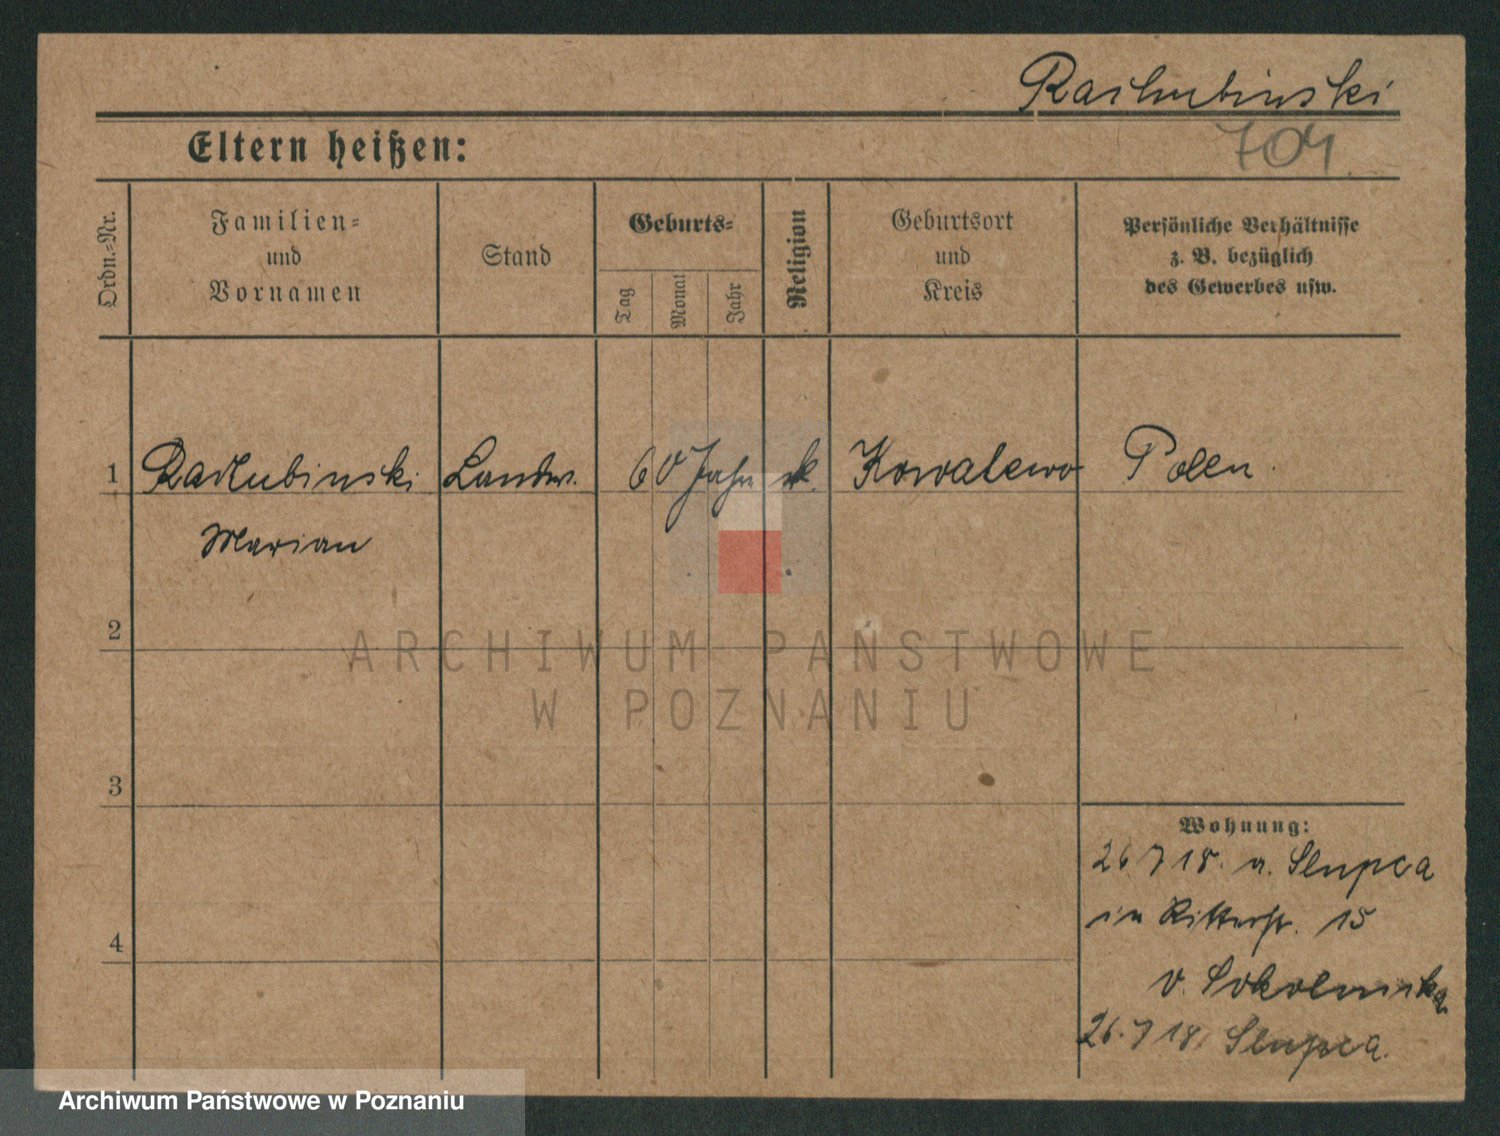 Radlubinski
704
Eltern heißen:
Ordn.-Nr.
Familien-
und
Vornamen
Stand
Geburts-
Tag
Monat
Jahr
Religion
Geburtsort
und
Kreis
Persönliche Verhältnisse
z. B. bezüglich
des Gewerbes usw.
1 Radlubinski Landw. 60 Jahre k. Kowalewo Polen.
Marian
2
3
4
Wohnung:
26 7 18. a. Slupca
in Ritterstr. 15
v. Sokolnicka
26.7 18. Slupca.
ARCHIWUM PAŃSTWOWE
W POZNANIU
Archiwum Państwowe w Poznaniu